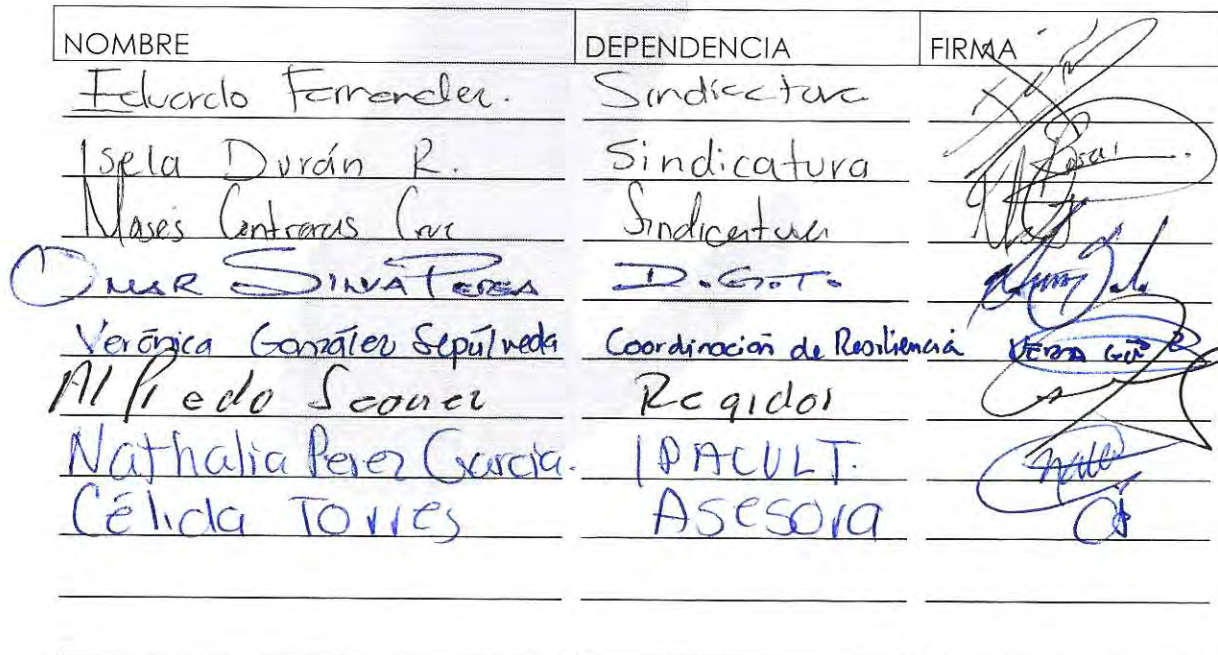 NOMBRE DEPENDENCIA FIRMA
Eduardo Fernandez. Sindicatura
Isela Durán R. Sindicatura
Moses Contreras Cruz Sindicatura
OMAR SILVA PEREA D.G.O.T.
Verónica González Sepúlveda Coordinación de Resiliencia
Alfredo Regidor
Nathalia Perez Garcia. IPACULT.
Célida Torres Asesora